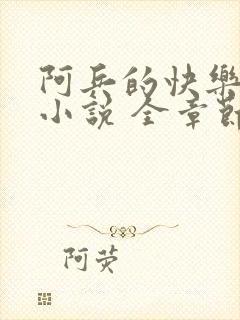 阿兵的快樂
小說 全章節
阿荧